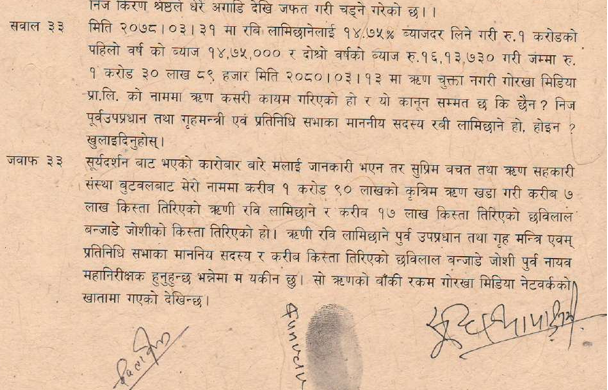 निज किरण श्रेष्ठले धेरै अगाडि देखि जफत गरी चड्ने गरेको छ।।
सवाल ३३ मिति २०७८।०३।३१ मा रवि लामिछानेलाई १४.७५% ब्याजदर लिने गरी रु.१ करोडको
पहिलो वर्ष को ब्याज १४,७५,००० र दोश्रो वर्षको ब्याज रु.१६,१३,७३० गरी जम्मा रु.
१ करोड ३० लाख ८९ हजार मिति २०८०।०३।१३ मा ऋण चुक्ता नगरी गोरखा मिडिया
प्रा.लि. को नाममा ऋण कसरी कायम गरिएको हो र यो कानून सम्मत छ कि छैन ? निज
पूर्वउपप्रधान तथा गृहमन्त्री एवं प्रतिनिधि सभाका माननीय सदस्य रवी लामिछाने हो, होइन ?
खुलाइदिनुहोस्।
जवाफ ३३ सूर्यदर्शन बाट भएको कारोबार बारे मलाई जानकारी भएन तर सुप्रिम बचत तथा ऋण सहकारी
संस्था बुटवलबाट मेरो नाममा करीब १ करोड ९० लाखको कृत्रिम ऋण खडा गरी करीब ७
लाख किस्ता तिरिएको ऋणी रवि लामिछाने र करीब १७ लाख किस्ता तिरिएको छविलाल
बन्जाडे जोशीको किस्ता तिरिएको हो। ऋणी रवि लामिछाने पुर्व उपप्रधान तथा गृह मन्त्रि एवम्
प्रतिनिधि सभाका माननिय सदस्य र करीब किस्ता तिरिएको छविलाल बन्जाडे जोशी पुर्व नायव
महानिरीक्षक हुनुहुन्छ भन्नेमा म यकीन छु। सो ऋणको बाँकी रकम गोरखा मिडिया नेटवर्कको
खातामा गएको देखिन्छ।